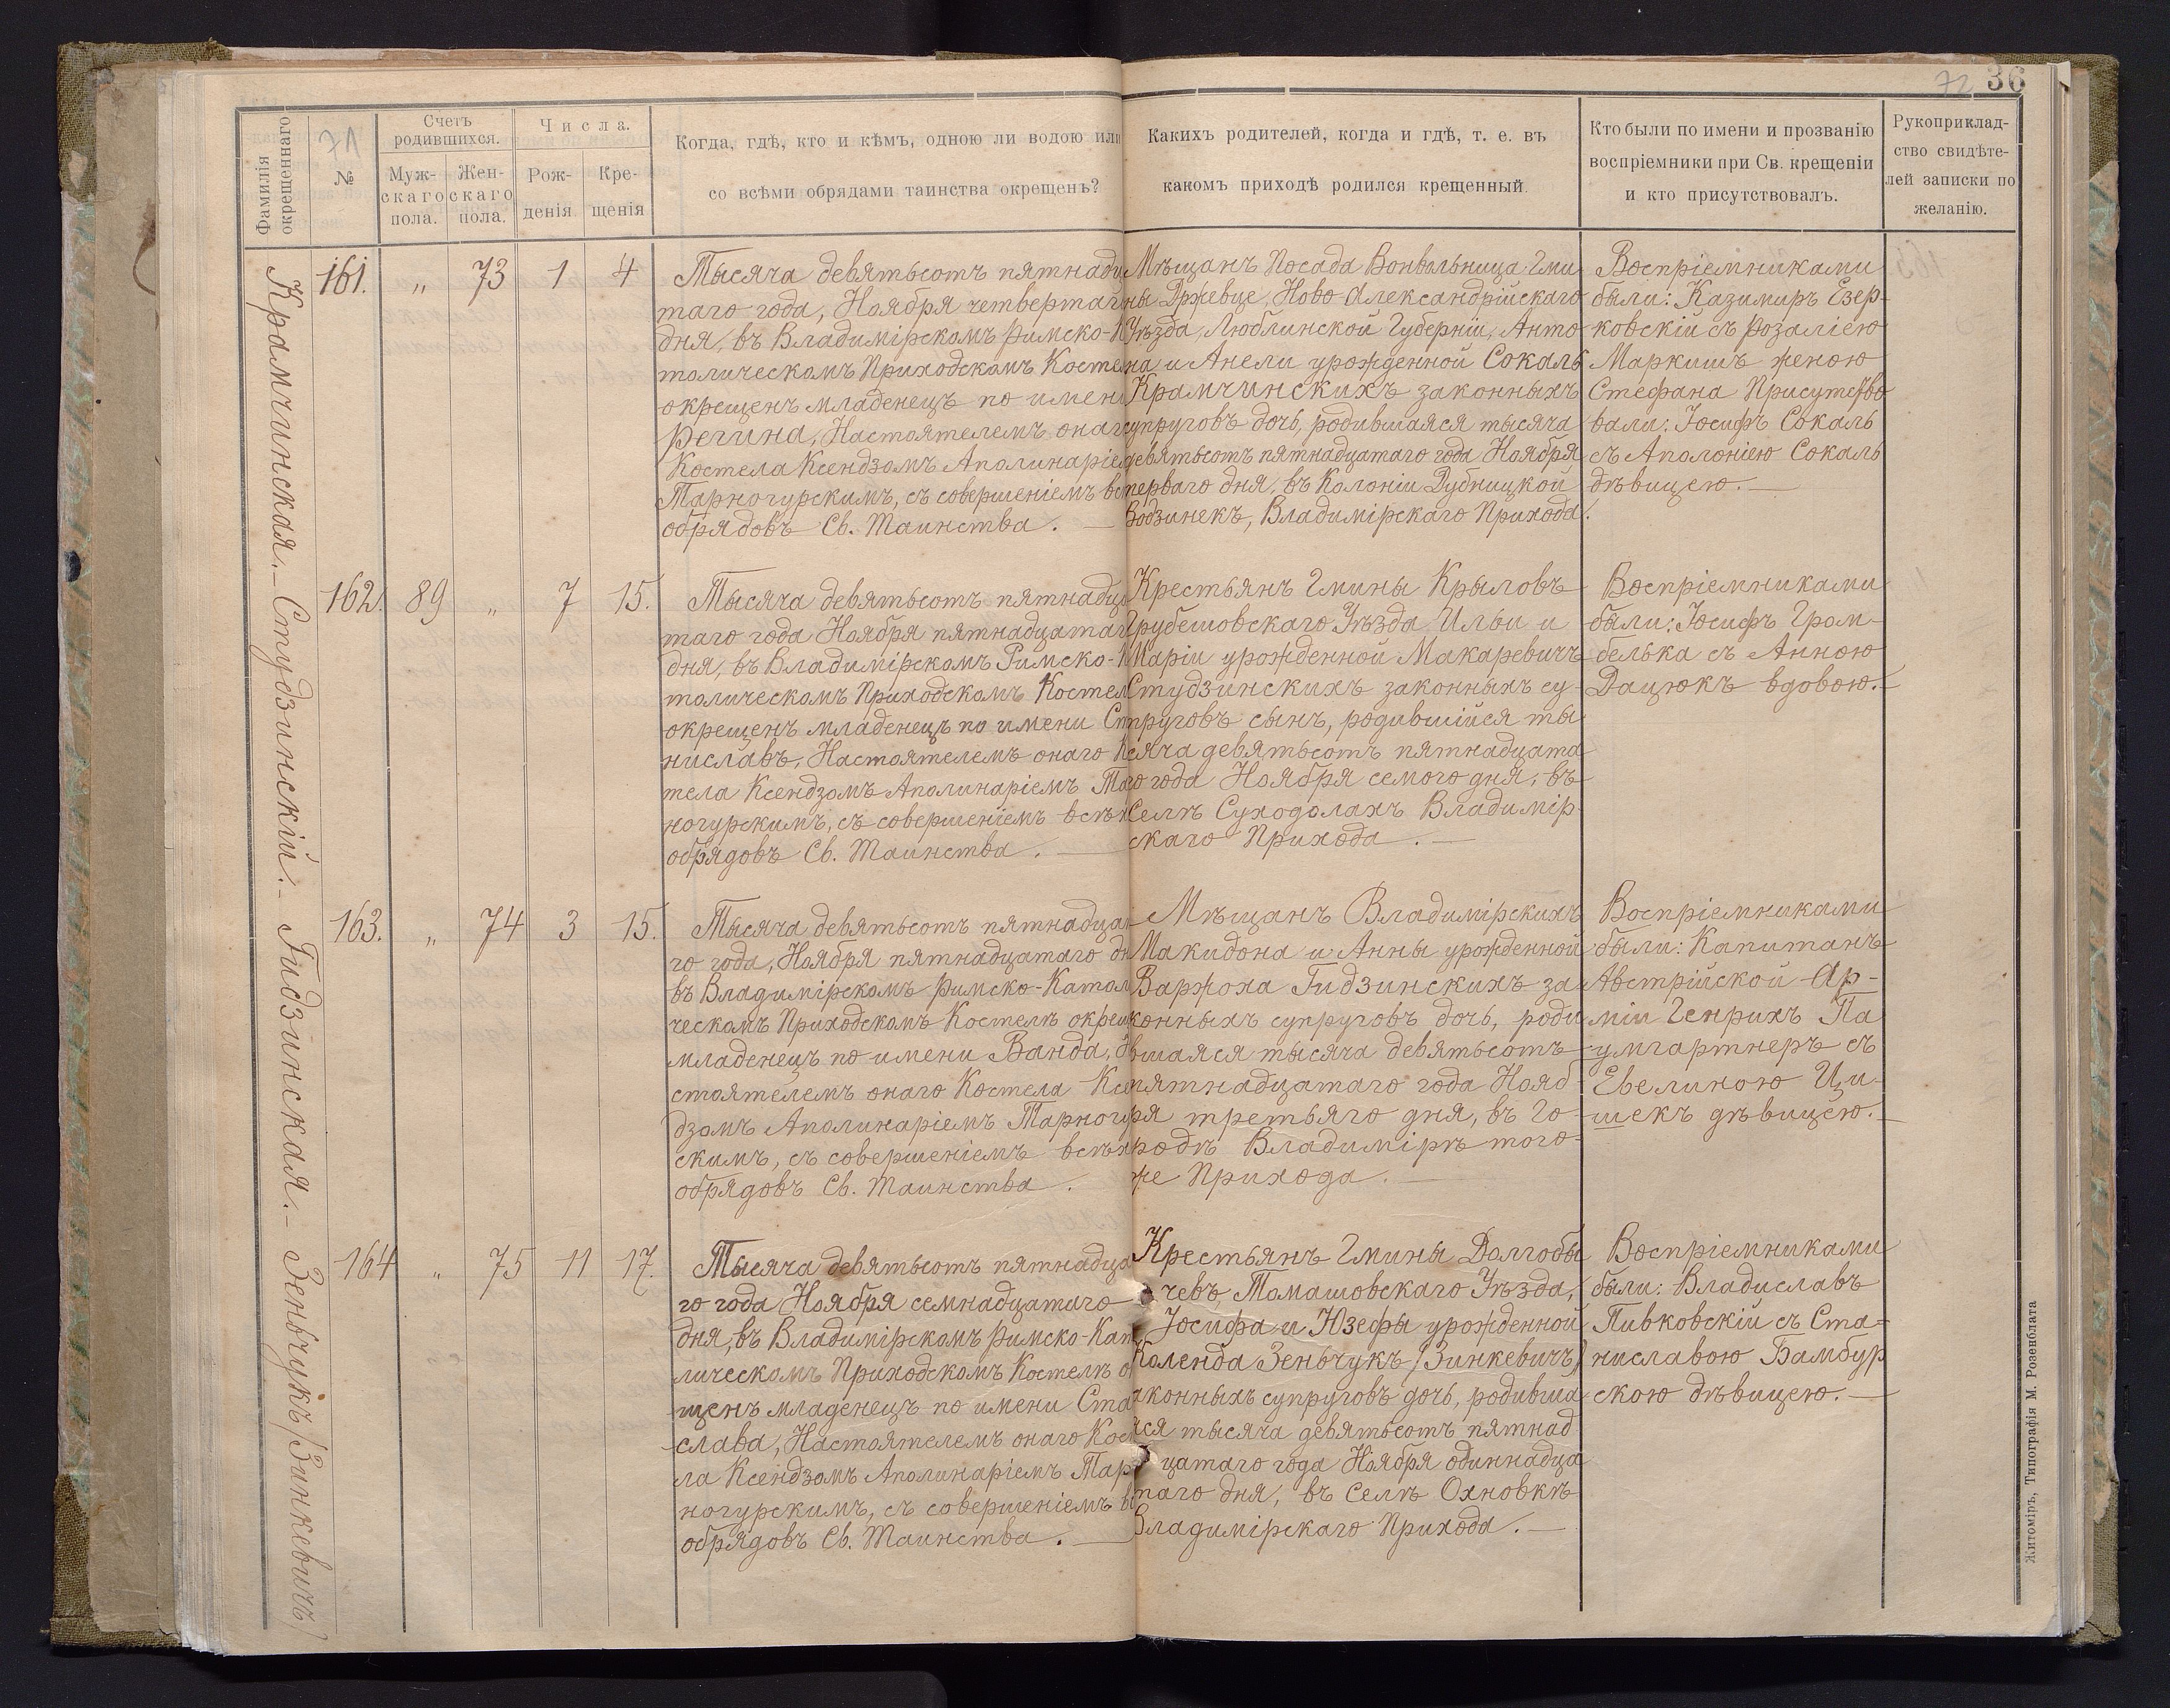 72 36
Фамилія
окрещеннаго
71
№
Счетъ
родившихся.
Муж-
скаго
пола.
Жен-
скаго
пола.
Числа.
Рож-
денія
Кре-
щенія
Когда, гдѣ, кто и кѣмъ, одною ли водою или
со всѣми обрядами таинства окрещенъ?
Каких родителей, когда и гдѣ, т. е. въ
какомъ приходѣ родился крещенный.
Кто были по имени и прозванію
воспріемники при Св. крещеніи
и кто присутствовалъ.
Рукоприклад-
ство свидѣте-
лей записки по
желанію.
Крамчинская.–
161. „ 73 1 4
Тысяча девятьсотъ пятнадца
таго года, Ноября четвертаг
дня, въ Владимірскомъ Римско-К
толическомъ Приходскомъ Косте
окрещенъ младенецъ по имени
Регина, Настоятелемъ онаг
Костела Ксендзомъ Аполинаріе
Тарногурскимъ, съ совершеніемъ вс
обрядовъ Св. Таинства. —
Мѣщанъ Посада Вонвольница Гми
ны Држевце, Ново-Александрійскаго
Уѣзда, Люблинской Губерніи, Анто
на и Анели урожденной Сокаль
Крамчинскихъ законныхъ
супруговъ дочь, родившаяся тысяча
девятьсотъ пятнадцатаго года Ноября
перваго дня, въ Колоніи Дубницкой
Водзинекъ, Владимірскаго Прихода.
Воспріемниками
были: Казимиръ Езер-
ковскій съ Розаліею
Маркишъ женою
Стефана Присутство
вали: Іосифъ Сокаль
съ Аполоніею Сокаль
дѣвицею. —
Студзинскій.–
162. 89 „ 7 15.
Тысяча девятьсотъ пятнадца
таго года Ноября пятнадцатаг
дня, въ Владимірскомъ Римско-К
толическомъ Приходскомъ Костел
окрещенъ младенецъ по имени Ст
ниславъ, Настоятелемъ онаго К
тела Ксендзомъ Аполинаріемъ Та
ногурскимъ, съ совершеніемъ всѣх
обрядовъ Св. Таинства. —
Крестьянъ Гмины Крыловъ
Грубешовскаго Уѣзда Ильи и
Маріи урожденной Макаревичъ
Студзинскихъ законныхъ су-
пруговъ сынъ, родившійся ты
сяча девятьсотъ пятнадцата
го года Ноября семого дня, въ
Селѣ Суходолахъ Владимір-
скаго Прихода. —
Воспріемниками
были: Іосифъ Гром-
белька съ Анною
Дацюкъ вдовою. —
Гидзинская.–
163. „ 74 3 15.
Тысяча девятьсотъ пятнадца
го года, Ноября пятнадцатаго дн
въ Владимірскомъ Римско-Катол
ческомъ Приходскомъ Костелѣ окрещ
младенецъ по имени Ванда,
стоятелемъ онаго Костела Ксе
дзомъ Аполинаріемъ Тарногу
скимъ, съ совершеніемъ всѣх
обрядовъ Св. Таинства.
Мѣщанъ Владимірскихъ
Макидона и Анны урожденной
Варжоха Гидзинскихъ за
конныхъ супруговъ дочь, роди
вшаяся тысяча девятьсотъ
пятнадцатаго года Нояб-
ря третьяго дня, въ Го-
родѣ Владимірѣ того-
же Прихода. —
Воспріемниками
были: Капитанъ
Австрійской Ар-
міи Генрихъ Па
умгартнеръ съ
Евелиною Ци-
шекъ дѣвицею. —
Зеньчукъ /Зинкевичъ/
164 „ 75 11 17.
Тысяча девятьсотъ пятнадца
го года Ноября семнадцатаго
дня, въ Владимірскомъ Римско-Кат
лическомъ Приходскомъ Костелѣ о
щенъ младенецъ по имени Ста
слава, Настоятелемъ онаго Кос
ла Ксендзомъ Аполинаріемъ Тар
ногурскимъ, съ совершеніемъ в
обрядовъ Св. Таинства. —
Крестьянъ Гмины Долгобы
чевъ, Томашовскаго Уѣзда,
Іосифа и Юзефы урожденной
Коленда Зеньчукъ /Зинкевичъ/
законныхъ супруговъ дочь, родивша
яся тысяча девятьсотъ пятнад
цатаго года Ноября одиннадца
таго дня, въ Селѣ Охновкѣ
Владимірскаго Прихода. —
Воспріемниками
были: Владиславъ
Пивковскій съ Ста-
ниславою Бамбур
скою дѣвицею. —
Житоміръ, Типографія М. Розенблата